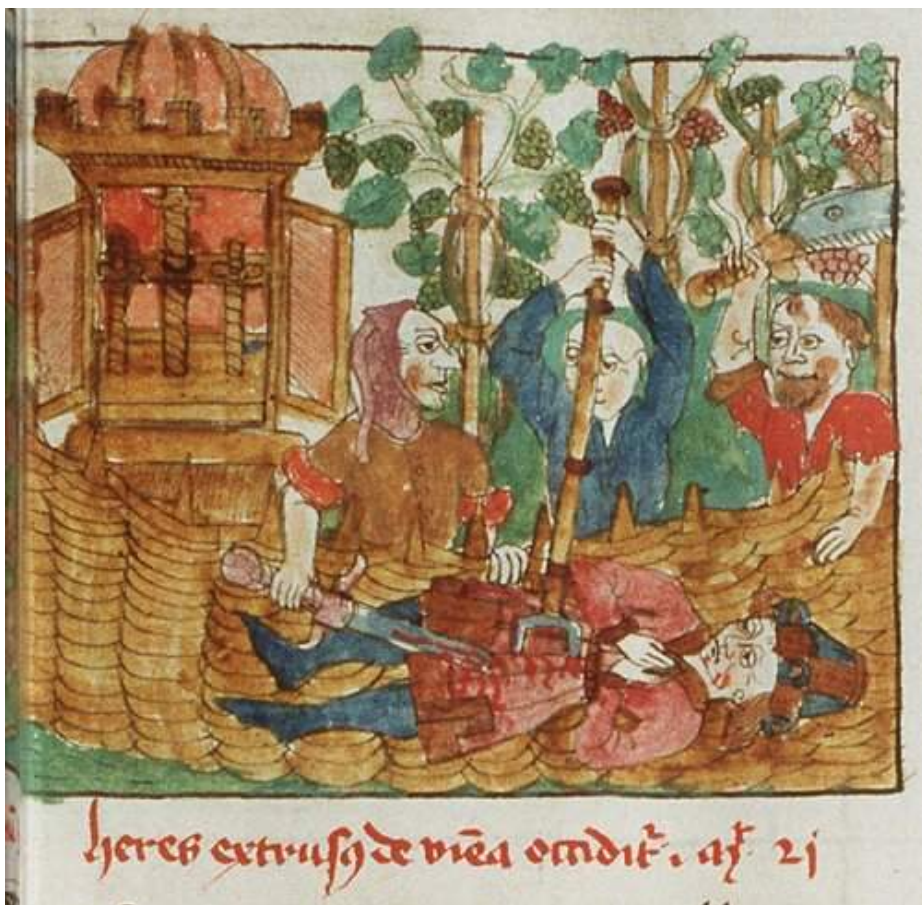 heres extrusꝯ de viēa occidit᷑ . 21